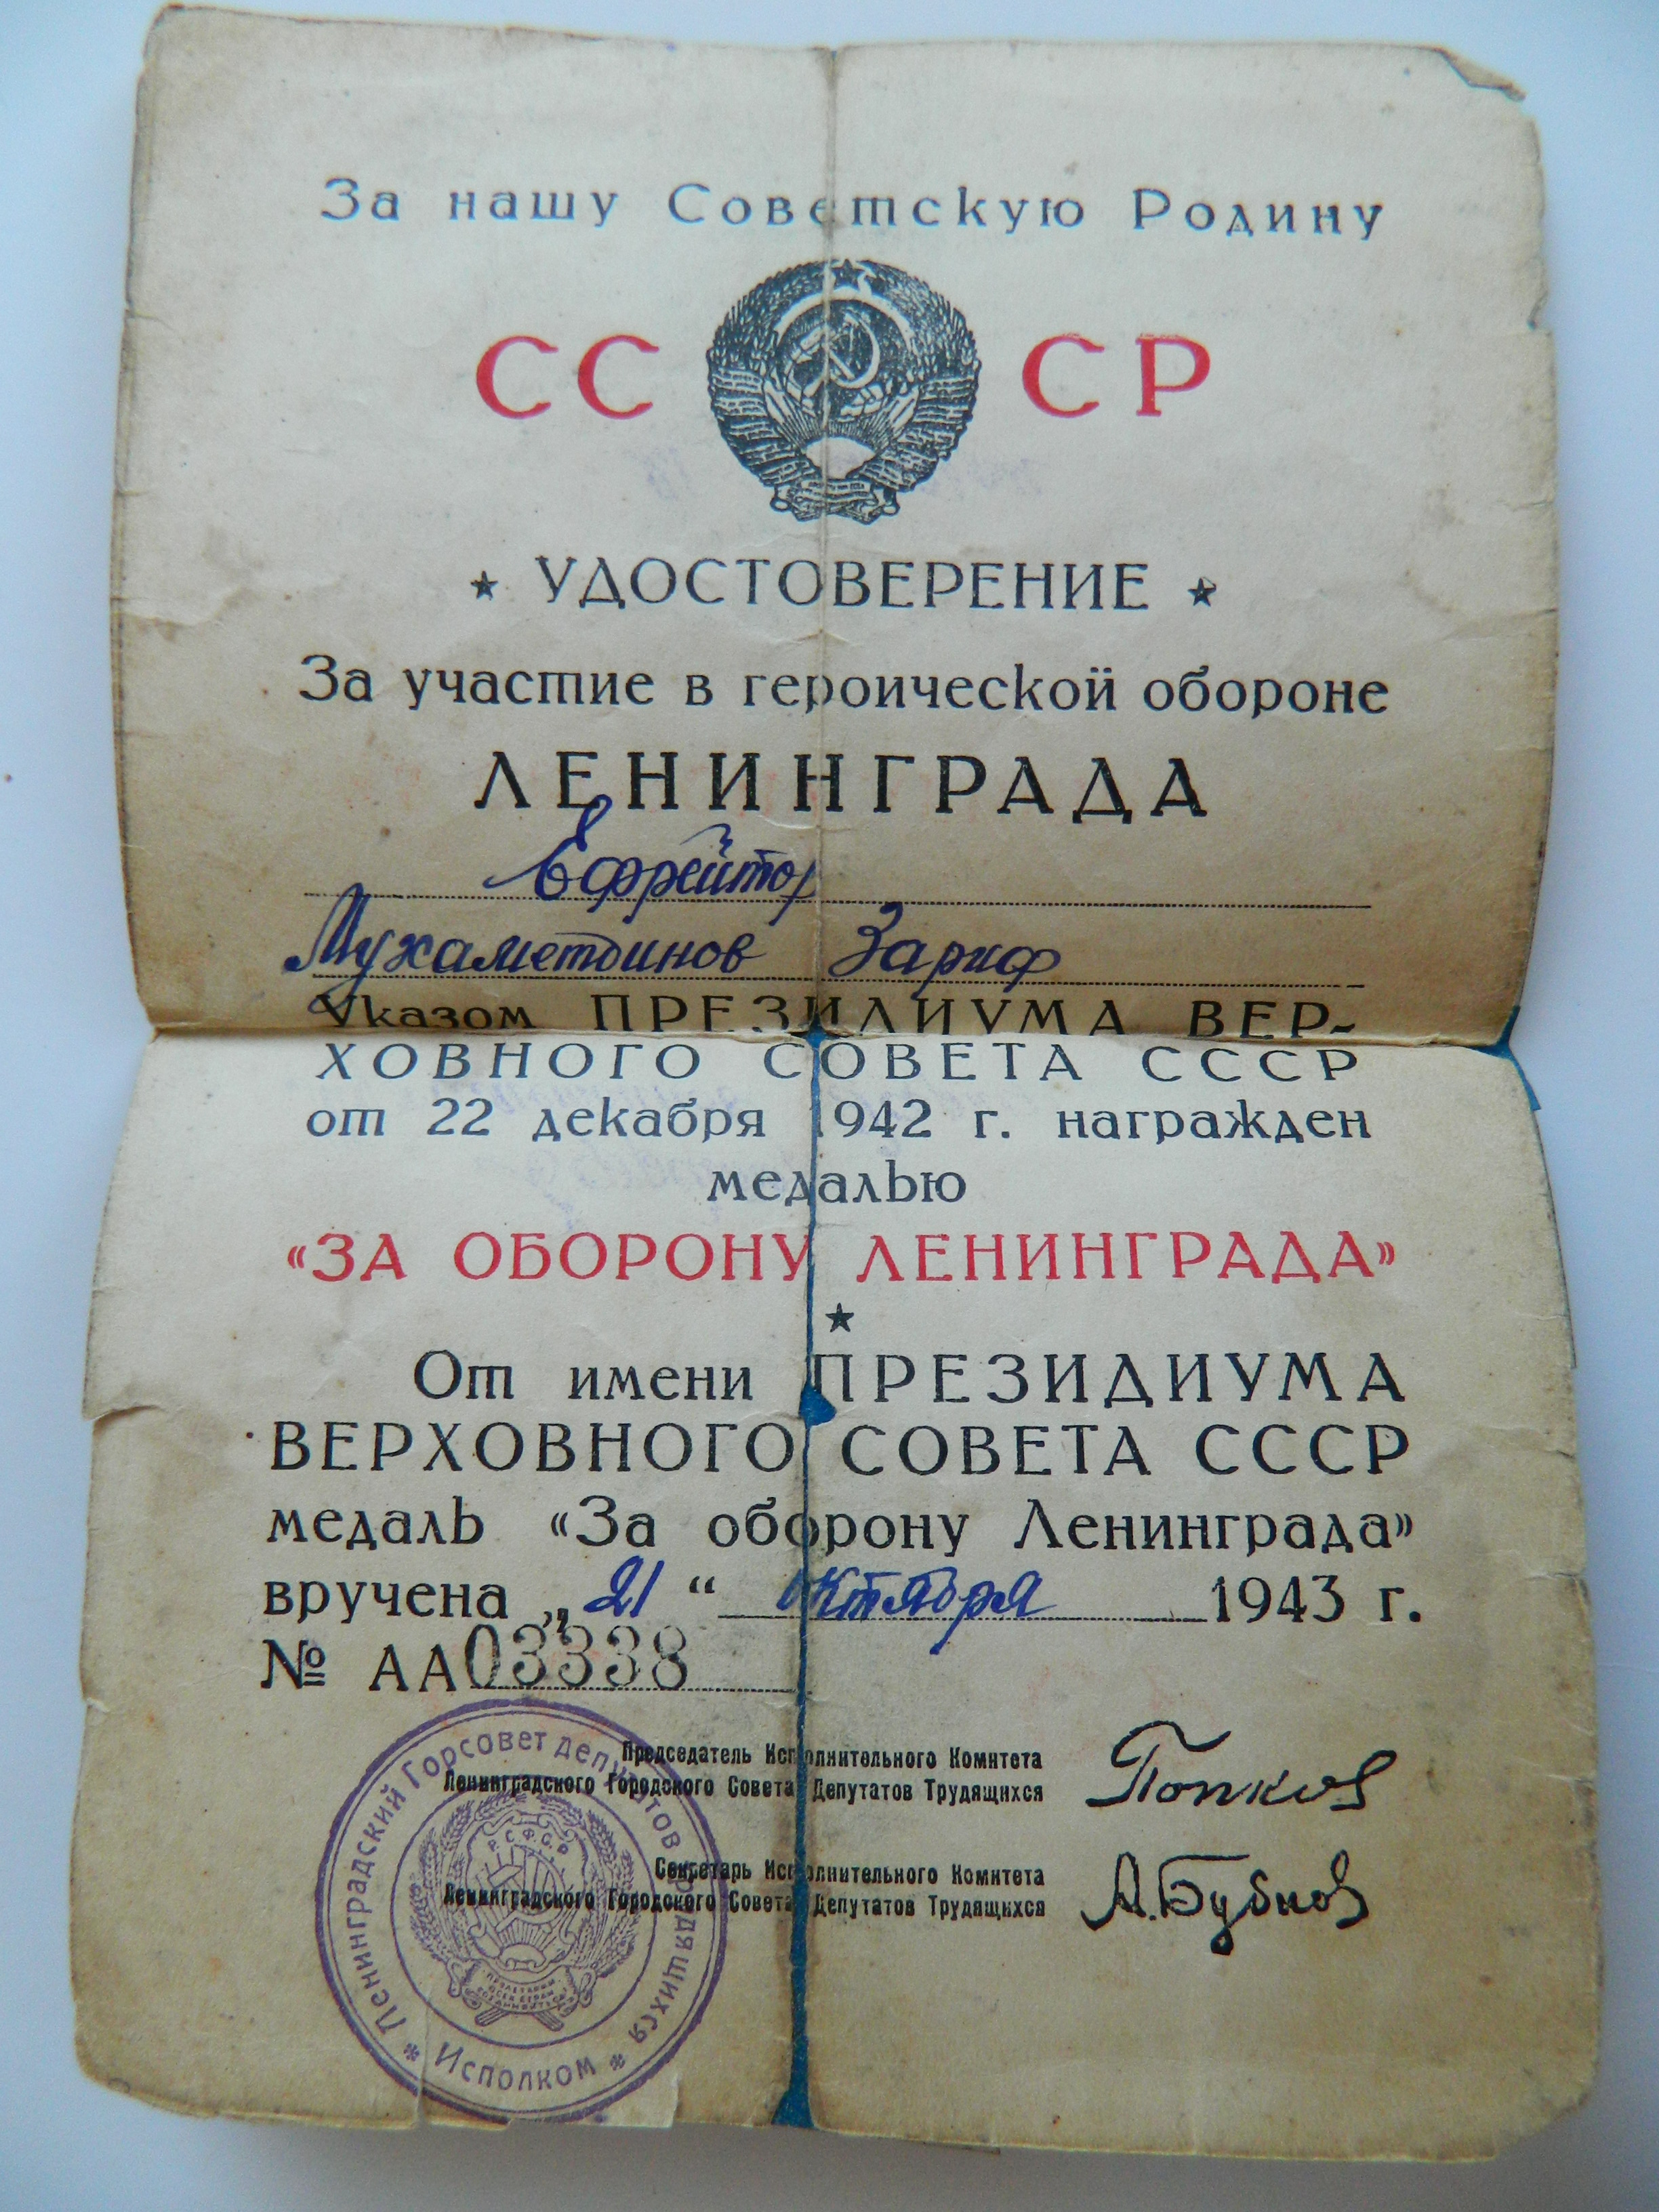 За нашу Советскую Родину
СС СР
★ УДОСТОВЕРЕНИЕ ★
За участие в героической обороне
ЛЕНИНГРАДА
Ефрейтор
Мухаметдинов Зариф
Указом ПРЕЗИДИУМА ВЕР-
ХОВНОГО СОВЕТА СССР
от 22 декабря 1942 г. награжден
медалью
«ЗА ОБОРОНУ ЛЕНИНГРАДА»
★
От имени ПРЕЗИДИУМА
ВЕРХОВНОГО СОВЕТА СССР
медаль «За оборону Ленинграда»
вручена „21“ октября 1943 г.
№ АА03338
Председатель Исполнительного Комитета
Ленинградского Городского Совета Депутатов Трудящихся
Попков
Секретарь Исполнительного Комитета
Ленинградского Городского Совета Депутатов Трудящихся
А.Бубнов
Ленинградский Горсовет депутатов трудящихся
* Исполком *
Р.С.Ф.С.Р.
ПРОЛЕТАРИИ
ВСЕХ СТРАН
СОЕДИНЯЙТЕСЬ